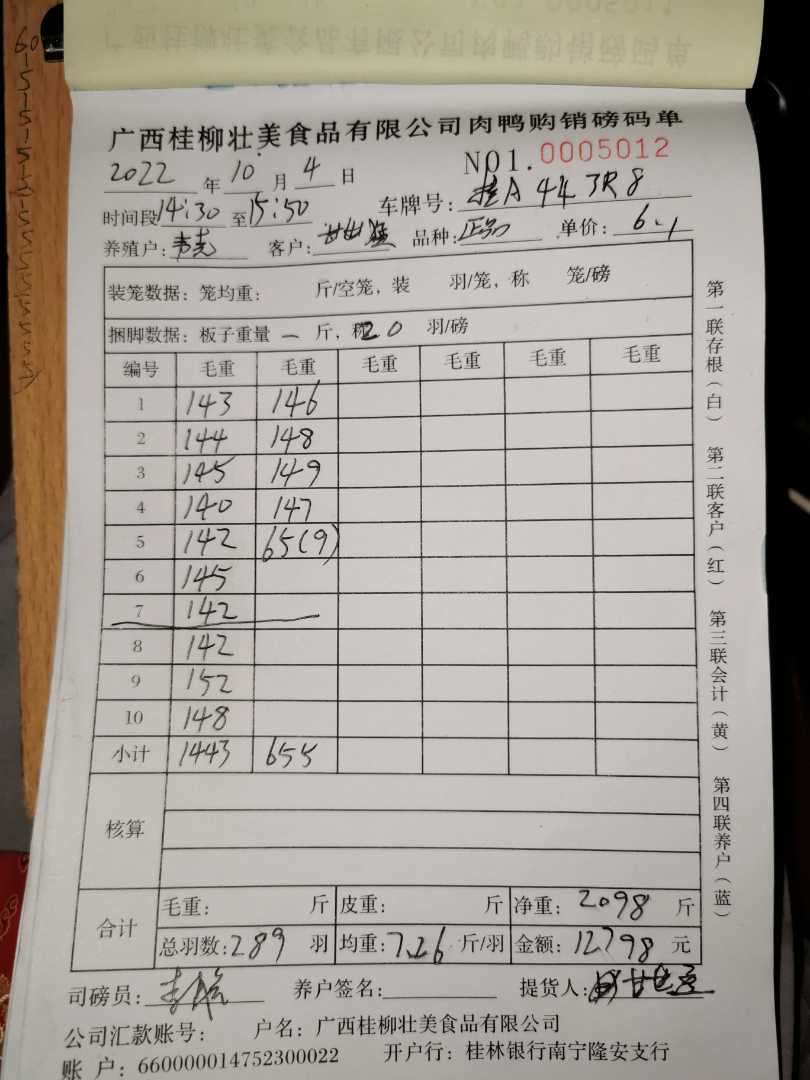 广西桂柳壮美食品有限公司肉鸭购销磅码单
2022 年 10 月 4 日 NO1.0005012
时间段 14:30 至 15:50 车牌号: 桂A443R8
养殖户: 客户: 品种: 正品 单价: 6.1
装笼数据: 笼均重: 斤/空笼, 装 羽/笼, 称 笼/磅
捆脚数据: 板子重量 一 斤, 称 20 羽/磅
编号 毛重 毛重 毛重 毛重 毛重 毛重
1 143 146
2 144 148
3 145 149
4 140 147
5 142 65(9)
6 145
7 142
8 142
9 152
10 148
小计 1443 655
核算
合计 毛重: 斤 皮重: 斤 净重: 2098 斤
总羽数: 289 羽 均重: 7.26 斤/羽 金额: 12798 元
司磅员: 养户签名: 提货人:
公司汇款账号: 户名: 广西桂柳壮美食品有限公司
账 户: 660000014752300022 开户行: 桂林银行南宁隆安支行
第一联存根(白) 第二联客户(红) 第三联会计(黄) 第四联养户(蓝)